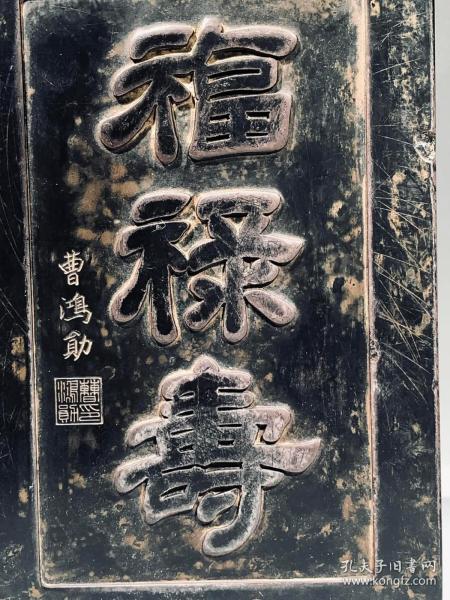 福祿壽
曹鴻勛
曹印鴻勛
孔夫子旧书网
www.kongfz.com